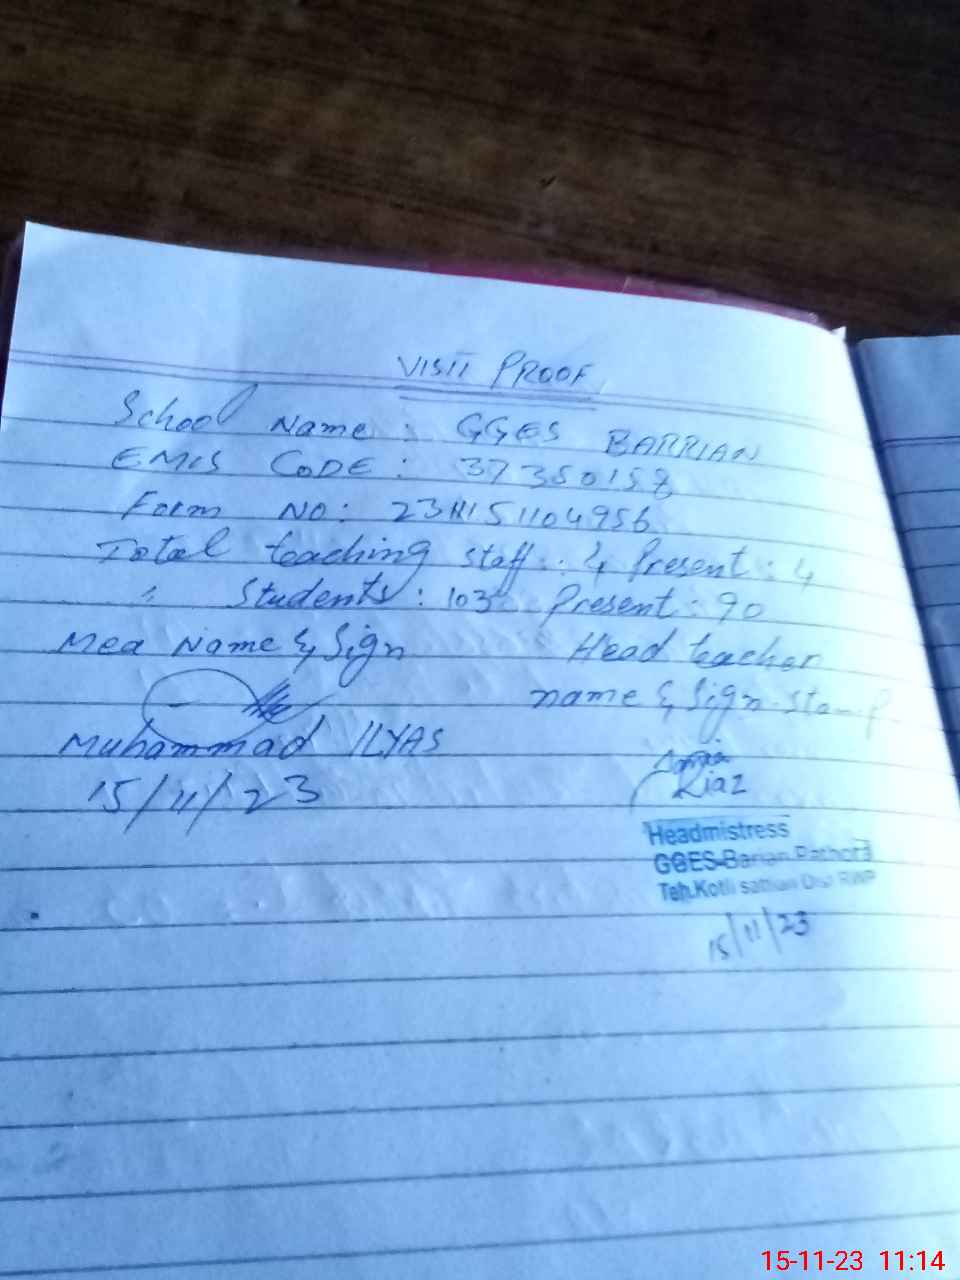 VISIT PROOF
School Name : GGES BARRIAN
EMIS CODE : 37350158
Form NO: 2311151104956
Total teaching staff : 4 Present : 4
" Students : 103 Present : 90
Mea Name & Sign
Head teacher
name & Sign. Stamp
Muhammad ILYAS
15/11/23
Riaz
Headmistress
GGES Barian Pathora
Teh.Kotli sattian Dist RWP
15/11/23
15-11-23 11:14